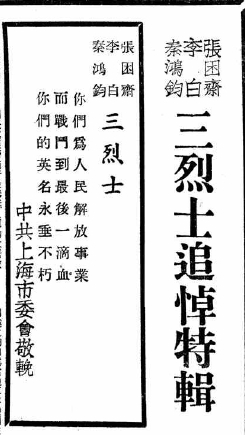 張困齋
李白
秦鴻鈞
三烈士追悼特輯
張困齋
李白
秦鴻鈞
三烈士
你們爲人民解放事業
而戰鬥到最後一滴血
你們的英名永垂不朽
中共上海市委會敬輓